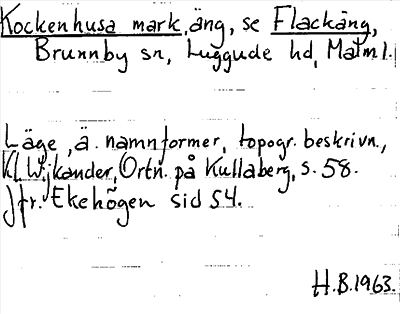 Kockenhusa mark, äng, se Flackäng,
Brunnby sn, Luggude hd, Malm l.
Läge, ä. namnformer, topogr. beskrivn.,
Kl. Wikander, Ortn. på Kullaberg, s. 58.
Jfr. Ekehögen sid 54.
H.B. 1963.